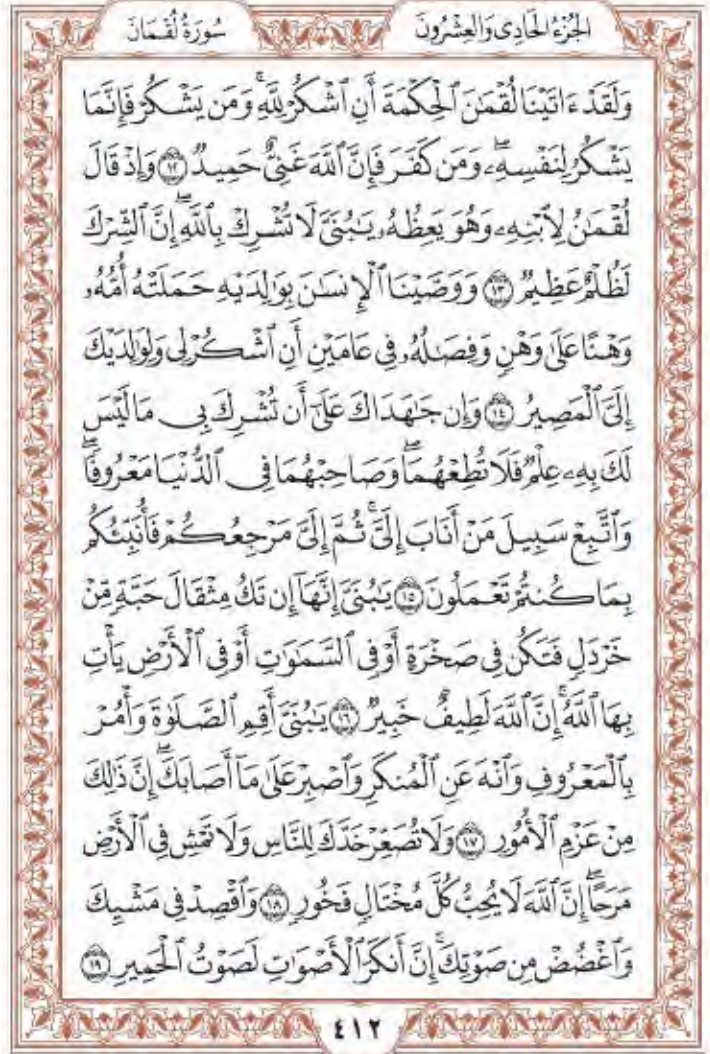 سُورَةُ لُقْمَانَ الجُزْءُ الحَادِى وَالعِشْرُونَ
وَلَقَدْ ءَاتَيْنَا لُقْمَٰنَ ٱلْحِكْمَةَ أَنِ ٱشْكُرْ لِلَّهِۚ وَمَن يَشْكُرْ فَإِنَّمَا
يَشْكُرُ لِنَفْسِهِۦۖ وَمَن كَفَرَ فَإِنَّ ٱللَّهَ غَنِىٌّ حَمِيدٌ ١٢ وَإِذْ قَالَ
لُقْمَٰنُ لِٱبْنِهِۦ وَهُوَ يَعِظُهُۥ يَٰبُنَىَّ لَا تُشْرِكْ بِٱللَّهِۖ إِنَّ ٱلشِّرْكَ
لَظُلْمٌ عَظِيمٌ ١٣ وَوَصَّيْنَا ٱلْإِنسَٰنَ بِوَٰلِدَيْهِ حَمَلَتْهُ أُمُّهُۥ
وَهْنًا عَلَىٰ وَهْنٍ وَفِصَٰلُهُۥ فِى عَامَيْنِ أَنِ ٱشْكُرْ لِى وَلِوَٰلِدَيْكَ
إِلَىَّ ٱلْمَصِيرُ ١٤ وَإِن جَٰهَدَاكَ عَلَىٰٓ أَن تُشْرِكَ بِى مَا لَيْسَ
لَكَ بِهِۦ عِلْمٌ فَلَا تُطِعْهُمَاۖ وَصَاحِبْهُمَا فِى ٱلدُّنْيَا مَعْرُوفًاۖ
وَٱتَّبِعْ سَبِيلَ مَنْ أَنَابَ إِلَىَّۚ ثُمَّ إِلَىَّ مَرْجِعُكُمْ فَأُنَبِّئُكُم
بِمَا كُنتُمْ تَعْمَلُونَ ١٥ يَٰبُنَىَّ إِنَّهَآ إِن تَكُ مِثْقَالَ حَبَّةٍ مِّنْ
خَرْدَلٍ فَتَكُن فِى صَخْرَةٍ أَوْ فِى ٱلسَّمَٰوَٰتِ أَوْ فِى ٱلْأَرْضِ يَأْتِ
بِهَا ٱللَّهُۚ إِنَّ ٱللَّهَ لَطِيفٌ خَبِيرٌ ١٦ يَٰبُنَىَّ أَقِمِ ٱلصَّلَوٰةَ وَأْمُرْ
بِٱلْمَعْرُوفِ وَٱنْهَ عَنِ ٱلْمُنكَرِ وَٱصْبِرْ عَلَىٰ مَآ أَصَابَكَۖ إِنَّ ذَٰلِكَ
مِنْ عَزْمِ ٱلْأُمُورِ ١٧ وَلَا تُصَعِّرْ خَدَّكَ لِلنَّاسِ وَلَا تَمْشِ فِى ٱلْأَرْضِ
مَرَحًاۖ إِنَّ ٱللَّهَ لَا يُحِبُّ كُلَّ مُخْتَالٍ فَخُورٍ ١٨ وَٱقْصِدْ فِى مَشْيِكَ
وَٱغْضُضْ مِن صَوْتِكَۚ إِنَّ أَنكَرَ ٱلْأَصْوَٰتِ لَصَوْتُ ٱلْحَمِيرِ ١٩
٤١٢